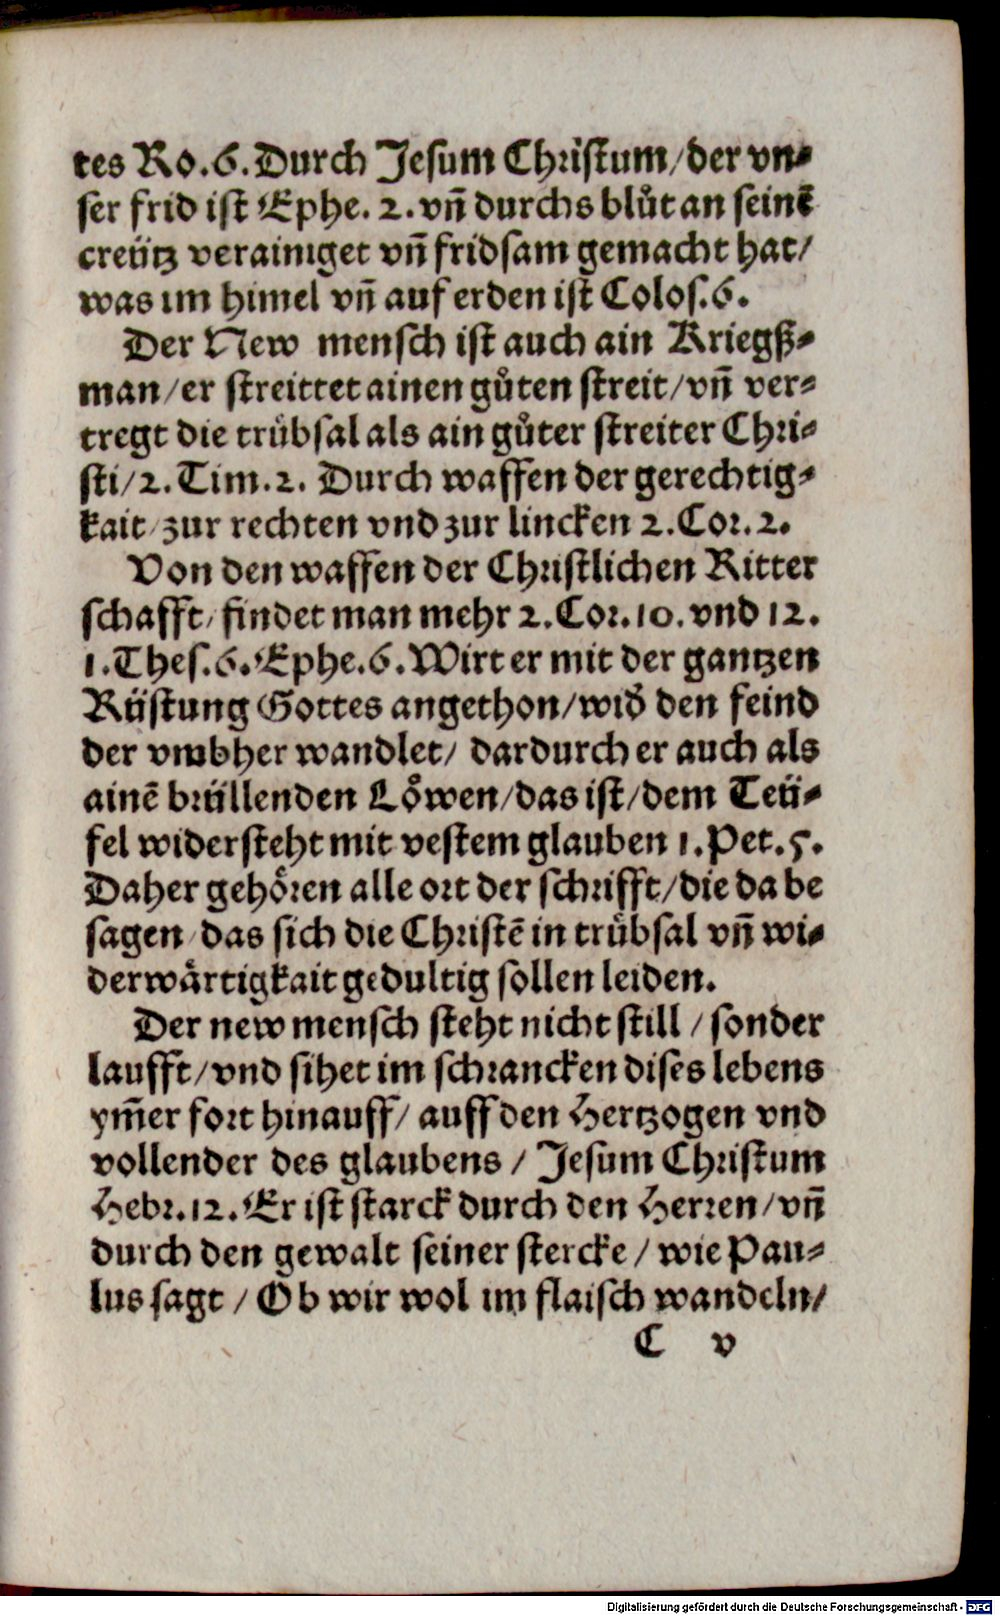 tes Ro.6. Durch Jesum Christum/der vn⸗
ser frid ist Ephe. 2. vn̄ durchs blůt an seinē
creütz verainiget vn̄ fridsam gemacht hat/
was im himel vn̄ auf erden ist Colos.6.
Der New mensch ist auch ain Kriegß⸗
man/er streittet ainen gůten streit/vn̄ ver⸗
tregt die trübsal als ain gůter streiter Chri⸗
sti/2. Tim. 2. Durch waffen der gerechtig⸗
kait/zur rechten vnd zur lincken 2. Cor. 2.
Von den waffen der Christlichen Ritter
schafft/findet man mehr 2. Cor. 10. vnd 12.
1. Thes.6. Ephe.6. Wirt er mit der gantzen
Rüstung Gottes angethon/wid̕ den feind
der vmbher wandlet/ dardurch er auch als
ainē brüllenden Löwen/das ist/dem Teü⸗
fel widersteht mit vestem glauben 1. Pet. 5.
Daher gehören alle ort der schrifft/die da be
sagen/das sich die Christē in trübsal vn̄ wi⸗
derwärtigkait gedultig sollen leiden.
Der new mensch steht nicht still/sonder
laufft/vnd sihet im schrancken dises lebens
ym̄er fort hinauff/ auff den Hertzogen vnd
vollender des glaubens/Jesum Christum
Hebr. 12. Er ist starck durch den Herren/vn̄
durch den gewalt seiner stercke/wie Pau⸗
lus sagt/Ob wir wol im flaisch wandeln/
C v
Digitalisierung gefördert durch die Deutsche Forschungsgemeinschaft - DFG